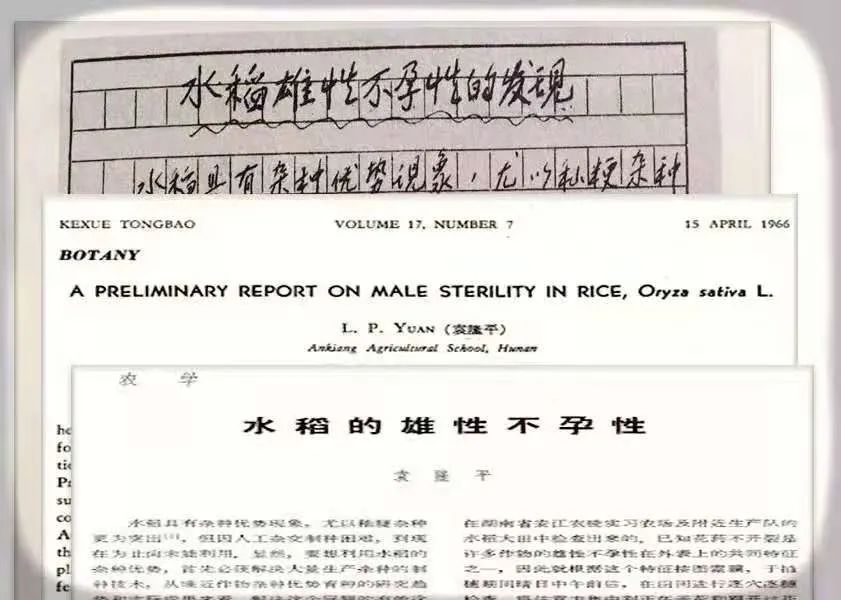 水稻雄性不孕性的发现
水稻具有杂种优势现象，尤以籼粳杂种
KEXUE TONGBAO VOLUME 17, NUMBER 7 15 APRIL 1966
BOTANY
A PRELIMINARY REPORT ON MALE STERILITY IN RICE, Oryza sativa L.
L. P. YUAN (袁隆平)
Ankiang Agricultural School, Hunan
农 学
水稻的雄性不孕性
袁 隆 平
fo
tic
Pr
su
co
A
th
pl
fe
水稻具有杂种优势现象，尤以籼粳杂种
更为突出[1]，但因人工杂交制种困难，到现
在为止尚未能利用。显然，要想利用水稻的
杂种优势，首先必须解决大量生产杂种的制
种技术，从晚近作物杂种优势育种的研究趋
在湖南省安江农校实习农场及附近生产队的
水稻大田中检查出来的。已知花药不开裂是
许多作物的雄性不孕性在外表上的共同特征
之一，因此就根据这个特征按图索骥，于抽
穗期间晴日中午前后，在田间进行逐穴逐穗